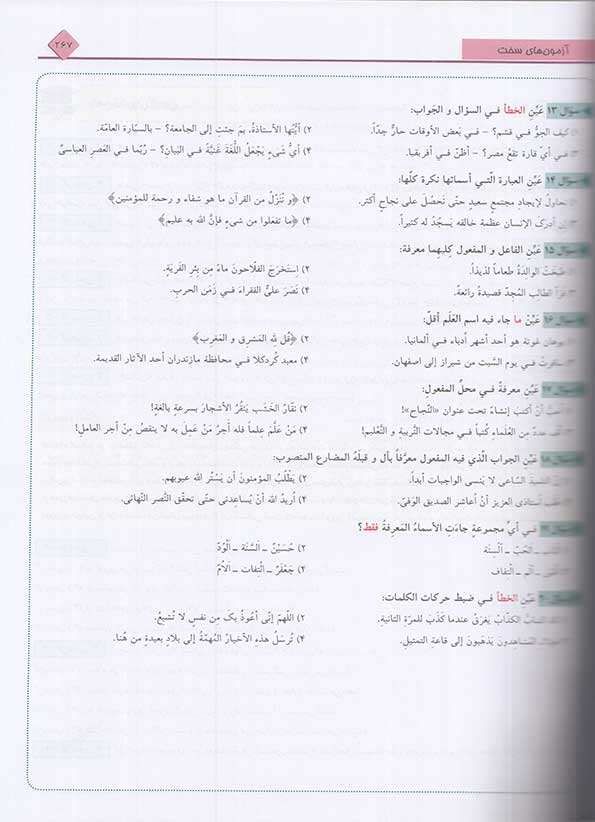 آزمون‌های سخت
۲۶۷
سؤال ۱۳ عَیِّنِ الخطأ فـي السؤال و الجَواب:
کیف الجوُّ فـي قشم؟ – فـي بَعض الأوقات حارٌّ جِدّاً.
۲) أیَّتُها الأستاذةُ، بِمَ جئتِ إلی الجامعة؟ – بالسیّارة العامّة.
فـي أيّ قارة تقعُ مصر؟ – أظنّ فـي أفریقیا.
۴) أيُّ شَـيءٍ یَجْعَلُ اللُّغَةَ غَنیَّةً فـي البَیانِ؟ – رُبَّما فـي العَصرِ العباسـيّ
سؤال ۱۴ عَیِّنِ العبارة الّتـي أسمائها نکرة کلّها:
نحاولُ لإیجاد مجتمعٍ سعیدٍ حتّی نَحصُلَ علی نجاحٍ أکثر.
۲) ﴿و نُنَزِّلُ من القرآن ما هو شفاء و رحمة للمؤمنین﴾
إن أدرکَ الإنسان عظمة خالقه یَسجُدُ له کثیراً.
۴) ﴿ما تفعلوا من شـيءٍ فإنَّ الله به علیم﴾
سؤال ۱۵ عَیِّنِ الفاعل و المفعول کِلیهما معرفة:
طبَخَتْ الوالِدةُ طعاماً لذیذاً.
۲) اِستَخرَجَ الفلّاحونَ ماءً مِن بِئرِ القَریَةِ.
قرأ الطالب المُجِدّ قصیدةً رائعةً.
۴) نَصَرَ علـيٌّ الفقراءَ فـي زَمَن الحربِ.
سؤال ۱۶ عَیِّنْ ما جاء فیه اسم العَلَم أقلّ:
غوتة هو أحد أشهر أدباء فـي ألمانیا.
۲) ﴿قُل لِلّه المَشرِق و المَغرِب﴾
فـي یوم السَّبت من شیراز إلی اصفهان.
۴) معبد کُردکلا فـي محافظة مازندران أحد الآثار القدیمة.
سؤال ۱۷ عَیِّنْ معرفةً فـي محلّ المفعولِ:
أنْ أکتبَ إنشاءً تحت عنوان «النَّجاح»!
۲) نقّارُ الخَشَب یَنقُرُ الأشجارَ بسرعةٍ بالغةٍ!
عددٌ مِن العُلَماء کُتباً فـي مجالات التَّربیةِ و التَّعْلیم!
۴) مَن عَلَّمَ عِلماً فله أجرُ مَنْ عَمِلَ به لا ینقصُ مِنْ أجر العاملِ!
سؤال ۱۸ عَیِّنِ الجواب الّذي فیه المفعول معرَّفاً بأل و قبلَهُ المضارع المنصوب:
السّاعـي لا یَنسی الواجبات أبداً.
۲) یَطْلُبُ المؤمنونَ أن یَسْتُر الله عیوبهم.
أستاذي العزیز أنْ أعاشر الصدیق الوَفـيّ.
۴) أریدُ الله أنْ یُساعدنـي حتّی تحقّق النَّصر النّهائـي.
سؤال ۱۹ فـي أيِّ مجموعةٍ جاءَتِ الأسماءُ المَعرِفةُ فقط؟
ـ الحُبّ ـ ألْسِنَة
۲) حُسَیْنٌ ـ السَّنَة ـ اَلْوُدّ
ـ ألَم ـ اَلْتِفاف
۴) جَعْفَرٌ ـ اِلْتِفات ـ اَلاُمّ
سؤال ۲۰ عَیِّنِ الخطأ فـي ضبط حرکات الکلمات:
الکَذّابُ یَغرَقُ عندما کَذَبَ للمرّة الثانیةِ.
۲) اللّهمَّ إنّي أعُوذُ بِکَ مِن نفسٍ لا تُشبِعُ.
یَذهَبونَ إلی قاعة التمثیلِ.
۴) تُرسَلُ هذهِ الأخبارُ المُهمّةُ إلی بلادٍ بعیدةٍ من هُنا.